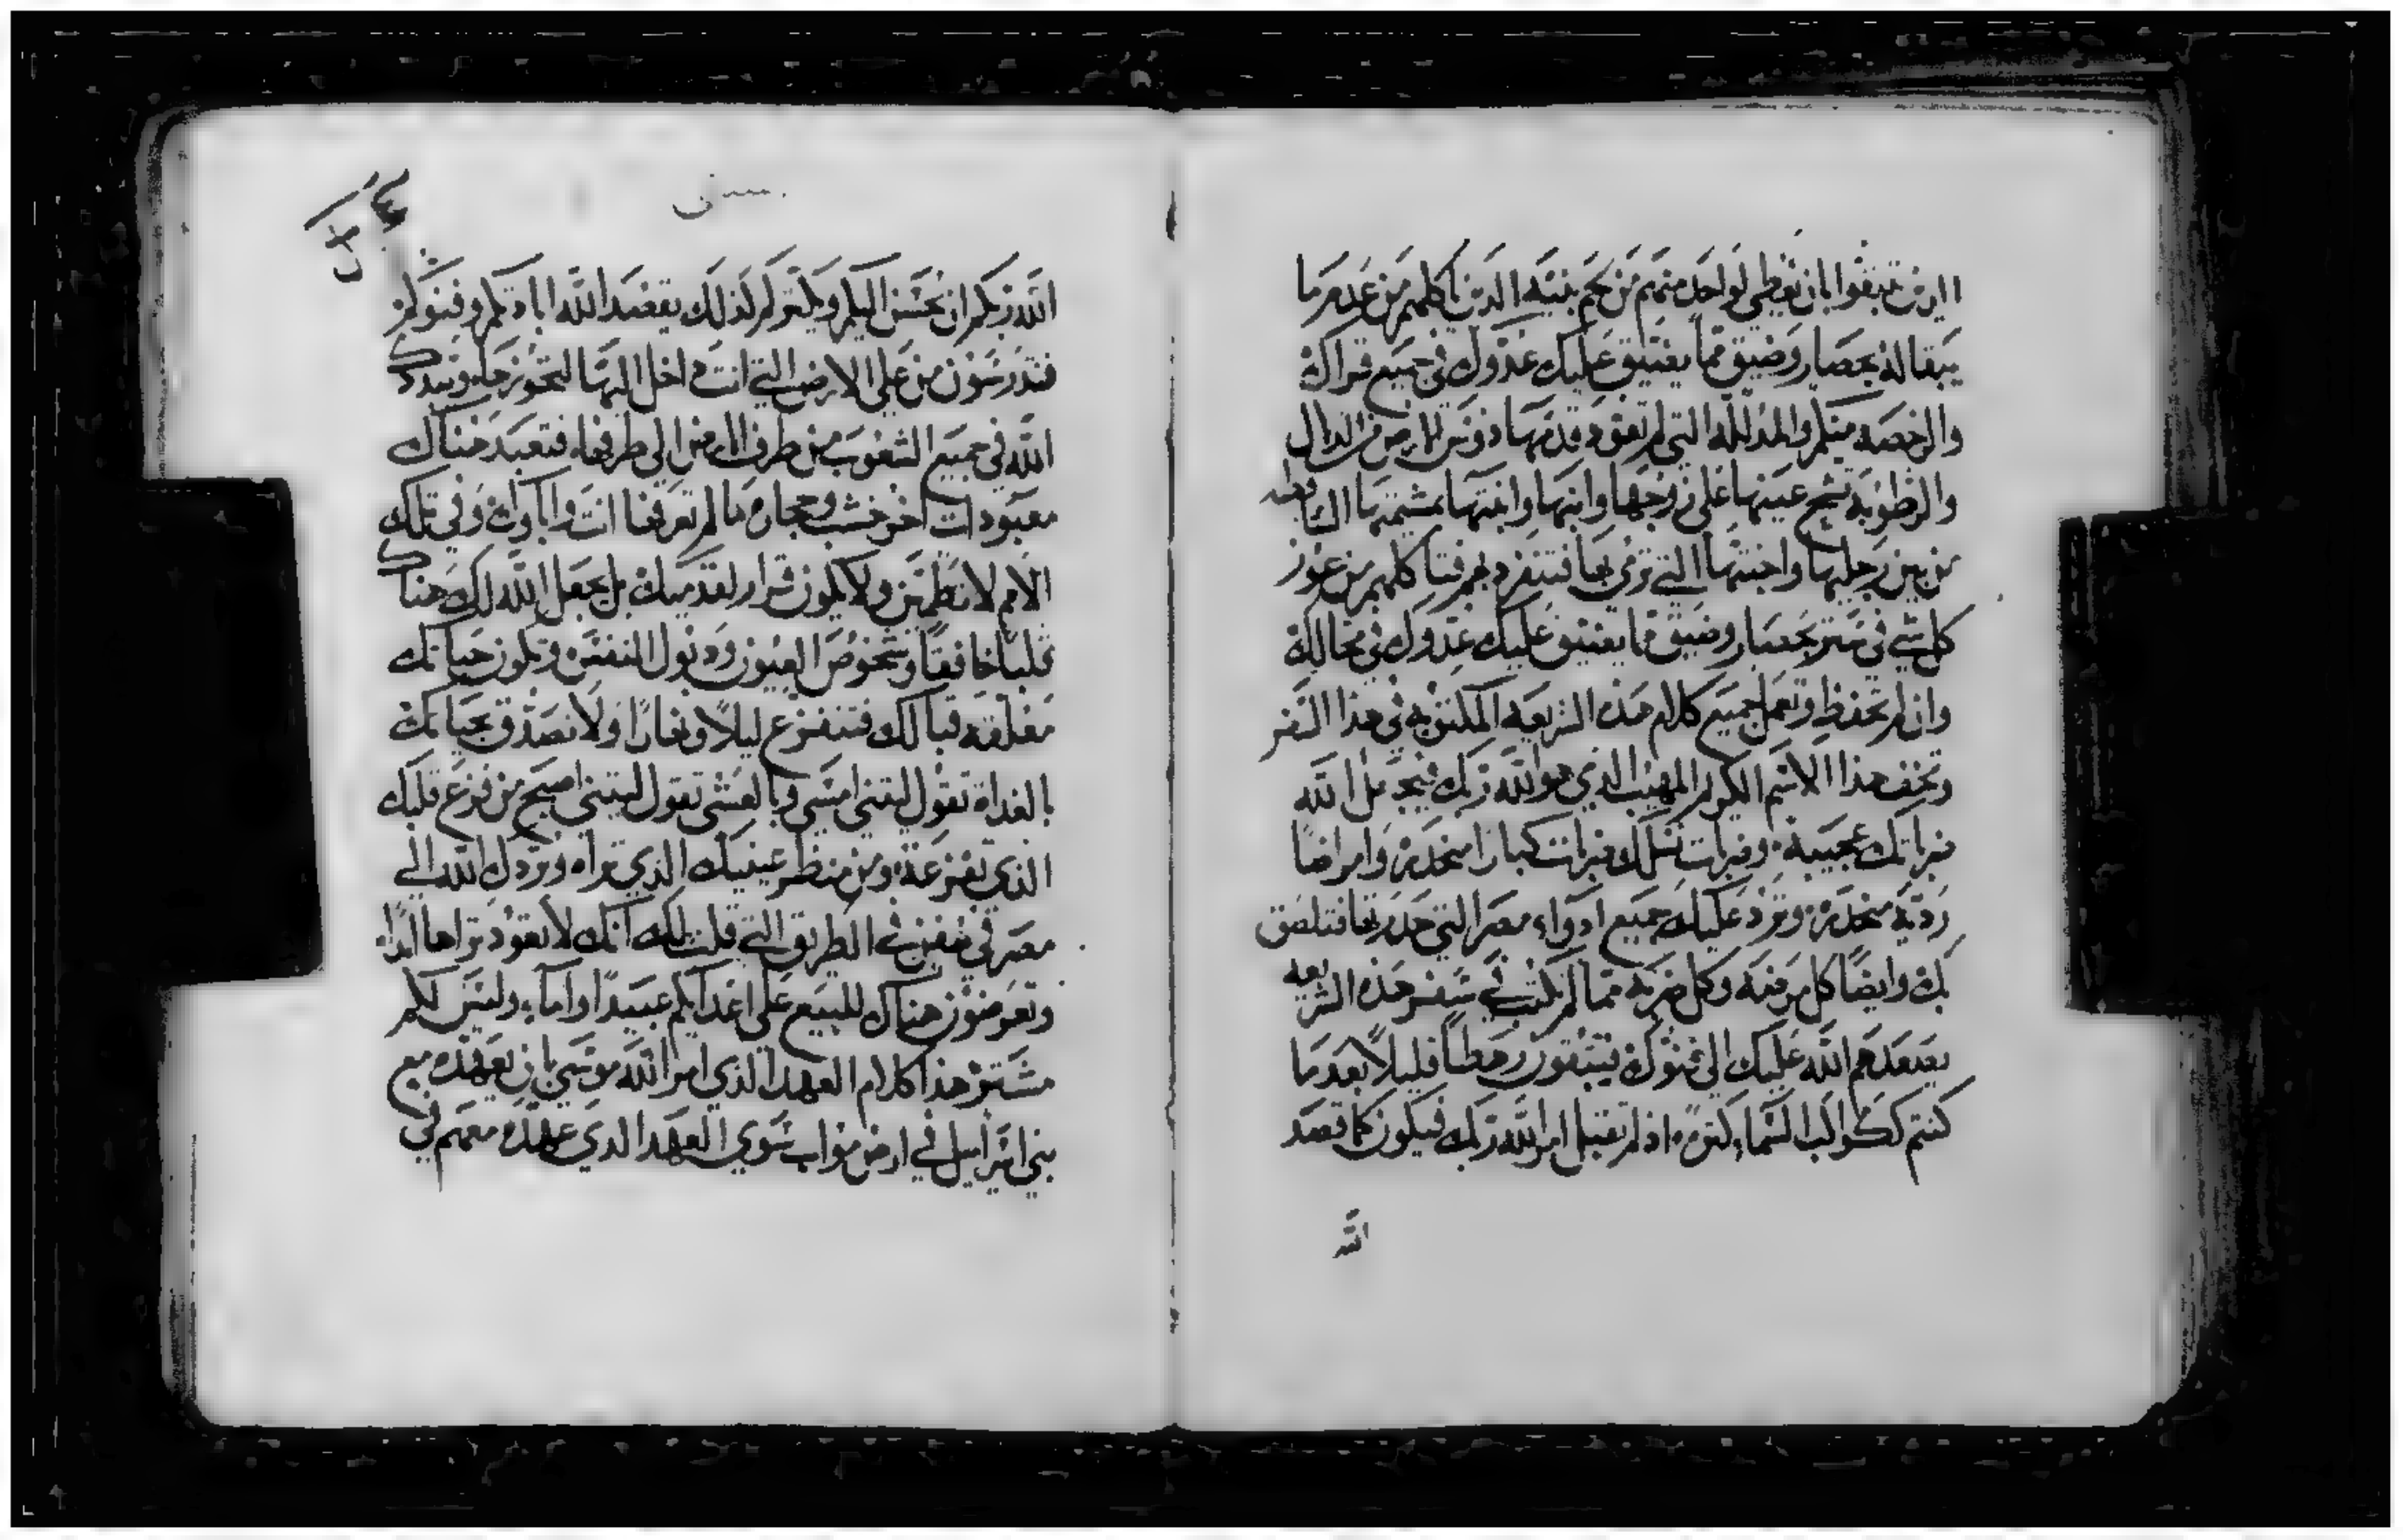 الذين تبقوا بان يعطي لواحد منهم من لحم بنيه الذي ياكلهم من عدم ما
يبقا له بحصار وضيق مما يضيق عليك عدوك في جميع قراك
والرخصه منكم والمدلله التي لم تعود قدمها دوس الارض من الدلال
والرطوبه تشح عينها على زوجها وابنها وابنتها بمشيمتها النازله
من بين رجليها واجنتها التي ترمي بها فتنفرد بهم فتاكلهم من عوز
كل شي في ستر بحصار وضيق مما يضيق عليك عدوك في محالك
وان لم تحفظ وتعمل جميع كلام هذه الشريعه المكتوبه في هذا السفر
وتخف هذا الاسم الكريم المهيب الذي هو الله ربك فيجعل الله
ضرباتك عجيبه وضربات نسلك ضربات كبارا متخذه وامراضا
رديه متخذه ويرد عليك جميع ادواء مصر التي حذرتها فتلصق
بك وايضا كل مرض وكل ضربه مما لم يكتب في سفر هذه الشريعه
يصعدهم الله عليك الى نفوك فيتبقون رهطا قليلا بعد ما
كنتم ككواكب السماء كثره اذ لم تقبل امر الله ربك فيكون كما قصد
الله
الله ربكم ان يحسن اليكم ويكثركم لذلك يقصد الله ابادتكم وفنوكم
فتدرسون من على الارض التي انت داخل اليها لتحوزها ويبددك
الله في جميع الشعوب من طرف الارض الى طرفها فتعبد هناك
معبودات اخر خشب وحجاره ما لم تعرفها انت واباوك وفي تلك
الامم لا تطمئن ولا يكون قرار لقدميك بل يجعل الله لك هناك
قلبا خافقا وشخوص العيون وذبول النفس وتكون حياتك
معلقه قبالك فتفزع ليلا ونهارا ولا تصدق بحياتك
بالغداة تقول ليتني امسي وبالعشي تقول ليتني اصبح من فزع قلبك
الذي تفزعه ومن منظر عينيك الذي تراه ويردك الله الى
مصر في سفن في الطريق التي قلت لك انك لا تعود تراها ابدا
وتعرضون هناك للبيع على اعدايكم عبيدا واماء وليس لكم
مشتر هذا كلام العهد الذي امر الله موسى بان يعهده مع
بني اسراييل في ارض مواب سوى العهد الذي عهده معهم في